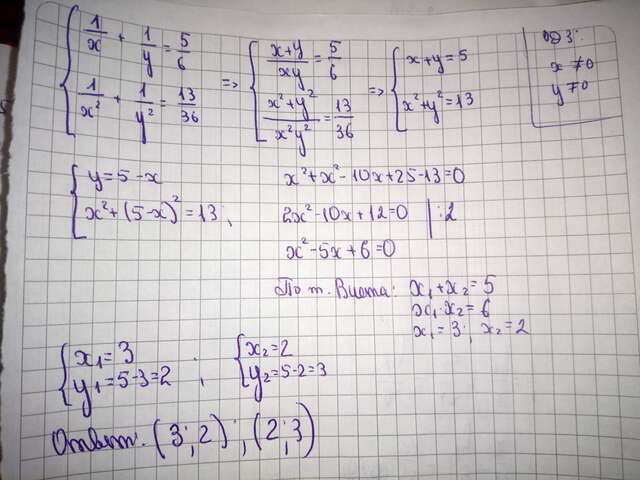 { 1/x + 1/y = 5/6
{ 1/x² + 1/y² = 13/36 => { (x+y)/(xy) = 5/6
{ (x²+y²)/(x²y²) = 13/36 => { x+y=5
{ x²+y²=13
ОДЗ:
x≠0
y≠0
{ y=5-x
{ x²+(5-x)²=13;
x²+x²-10x+25-13=0
2x²-10x+12=0 |:2
x²-5x+6=0
По т. Виета: x₁+x₂=5
x₁·x₂=6
x₁=3; x₂=2
{ x₁=3
{ y₁=5-3=2 ; { x₂=2
{ y₂=5-2=3
Ответ: (3;2); (2;3)